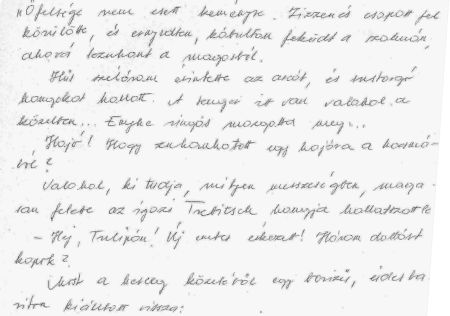 "Őfelsége nem esett keményre. Zizzenés csapott fel
körülötte, és ernyedten, kábultan feküdt a szalmán,
ahová lezuhant a magosból.
Hűs szélroham érintette az arcát, és sustorgó
hangokat hallott. A tenger itt van valahol a
közelben... Enyhe ringás mozgatta meg...
Hajó! Hogy zuhanhatott egy hajóra a kocsmá-
ból?
Valahol, ki tudja, milyen messzeségben, maga-
san felette az igazi Trebitsch hangja hallatszott:
- Hej, Tulipán! Új ember érkezett! Három dollárt
kapok?
Most a herceg közeléből egy borízű, érdes ba-
ritón kiáltott vissza: